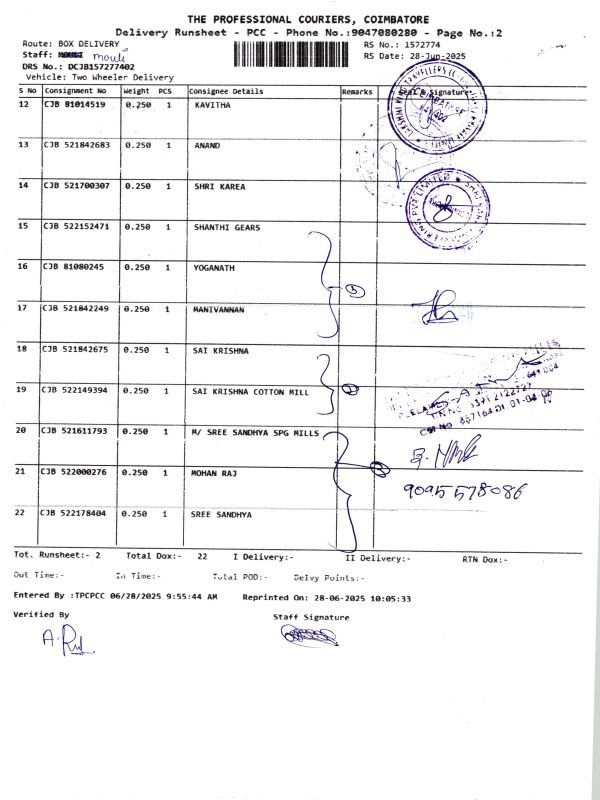 THE PROFESSIONAL COURIERS, COIMBATORE
Delivery Runsheet - PCC - Phone No.:9047080280 - Page No.:2
Route: BOX DELIVERY
RS No.: 1572774
Staff: mouli
RS Date: 28-Jun-2025
DRS No.: DCJB157277402
Vehicle: Two Wheeler Delivery
S No Consignment No Weight PCS Consignee Details Remarks Seal & Signature
12 CJB 81014519 0.250 1 KAVITHA
13 CJB 521842683 0.250 1 ANAND
14 CJB 521700307 0.250 1 SHRI KAREA
15 CJB 522152471 0.250 1 SHANTHI GEARS
16 CJB 81080245 0.250 1 YOGANATH
17 CJB 521842249 0.250 1 MANIVANNAN
18 CJB 521842675 0.250 1 SAI KRISHNA
19 CJB 522149394 0.250 1 SAI KRISHNA COTTON MILL
20 CJB 521611793 0.250 1 M/ SREE SANDHYA SPG MILLS
21 CJB 522000276 0.250 1 MOHAN RAJ
9095578086
22 CJB 522178404 0.250 1 SREE SANDHYA
Tot. Runsheet:- 2 Total Dox:- 22 I Delivery:- II Delivery:- RTN Dox:-
Out Time:- In Time:- Total POD:- Delvy Points:-
Entered By :TPCPCC 06/28/2025 9:55:44 AM Reprinted On: 28-06-2025 10:05:33
Verified By
Staff Signature